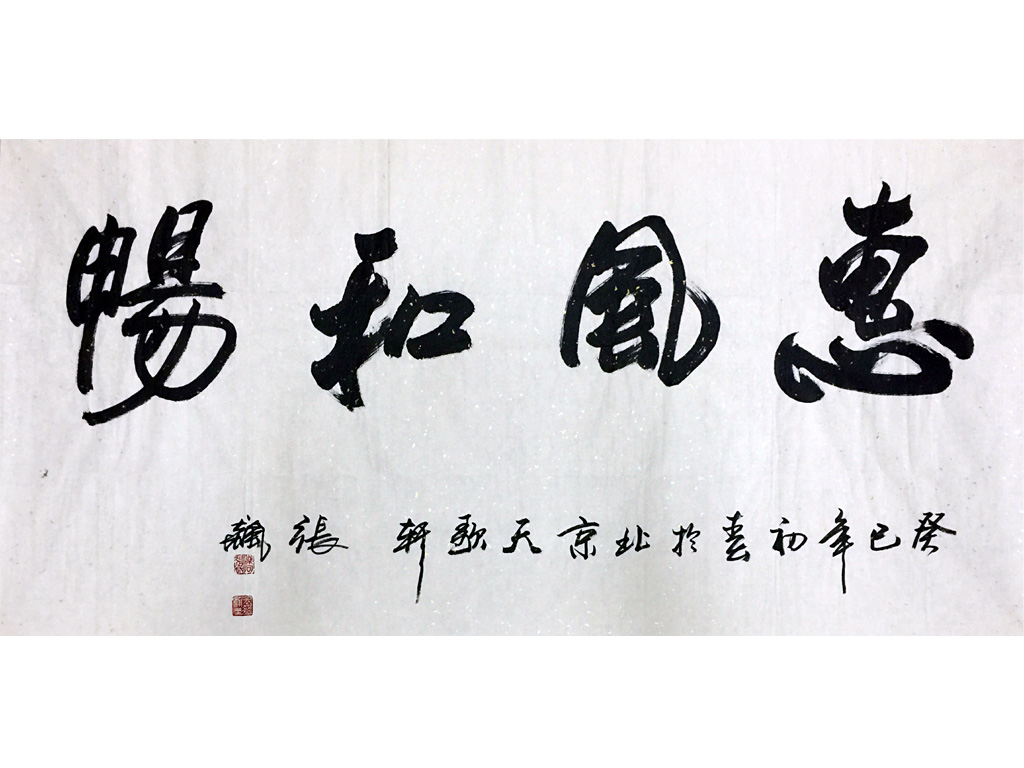 惠風和暢
癸巳年初春於北京天歌軒 張